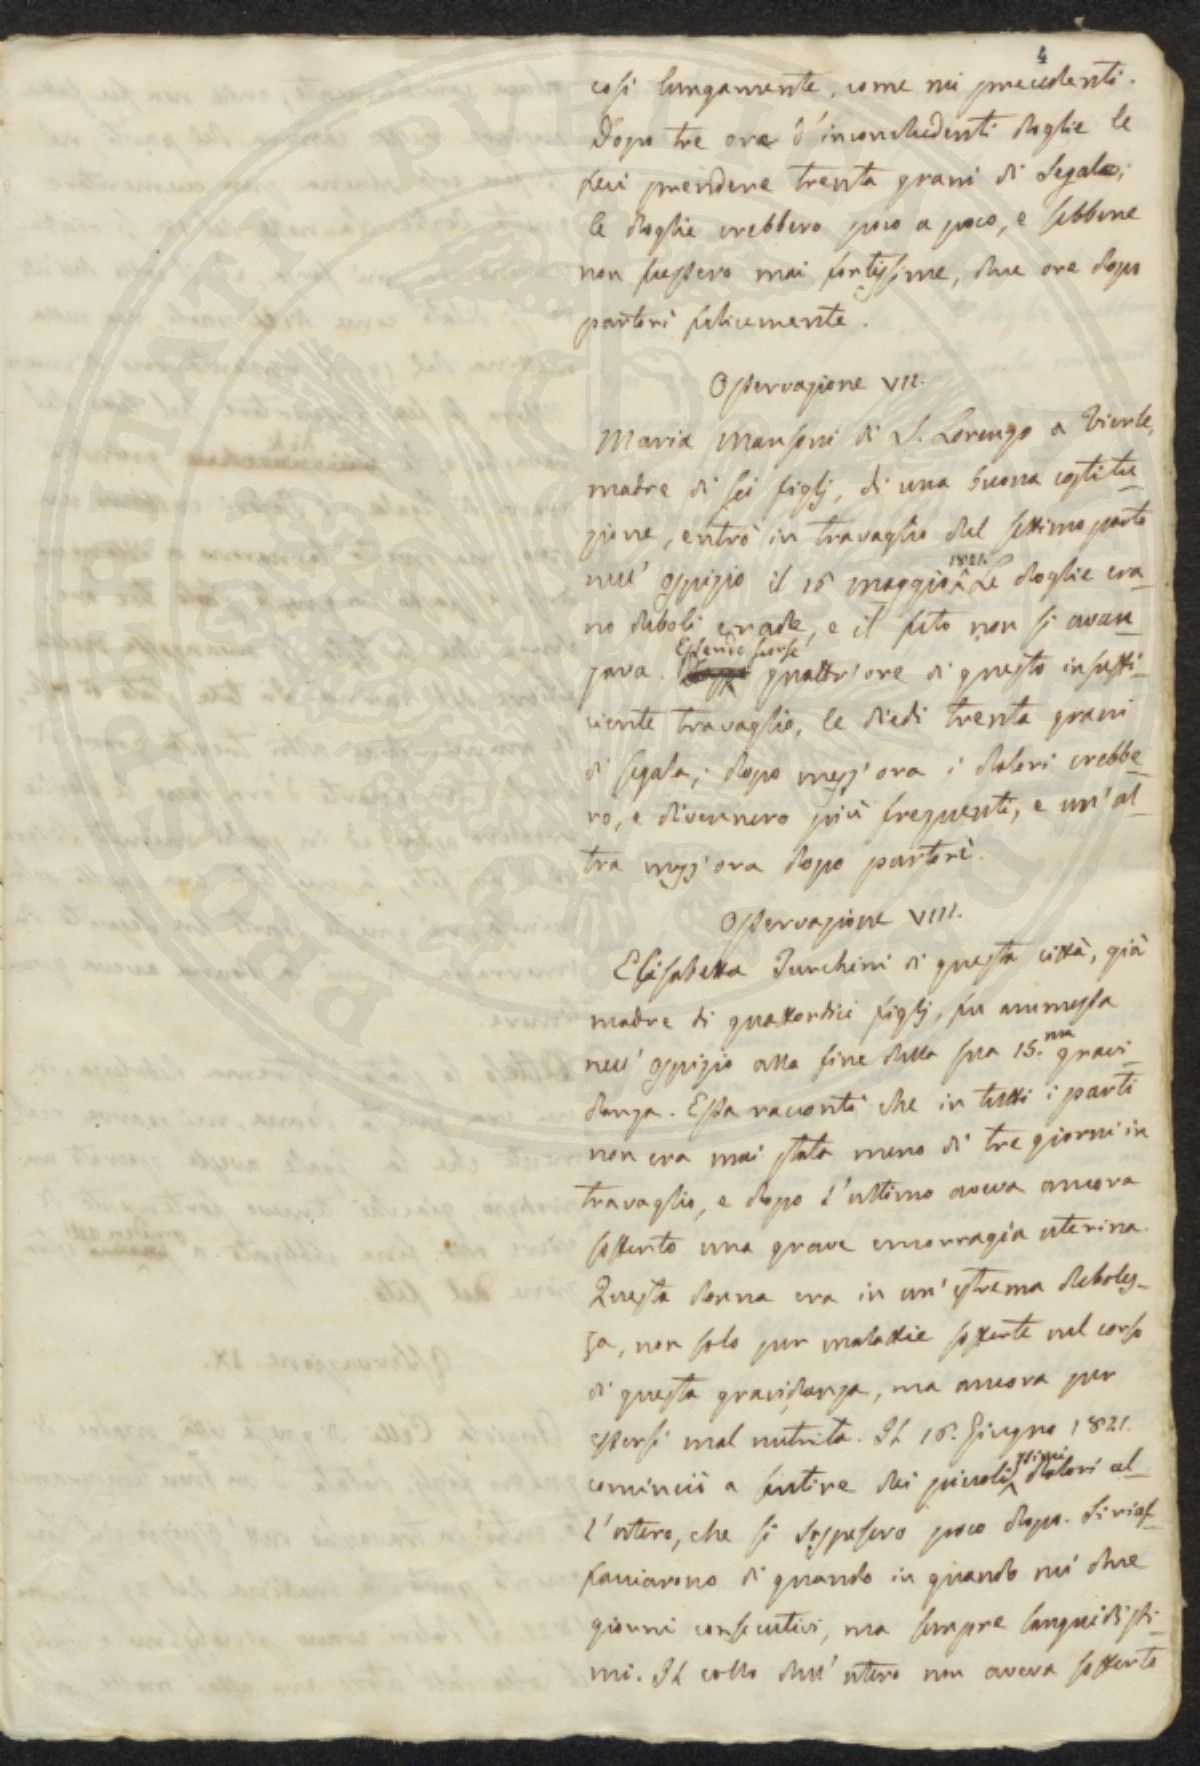 4
così lungamente, come nei precedenti.
Dopo tre ore d'inconcludenti doglie le
feci prendere trenta grani di Segala;
le doglie crebbero poco a poco, e sebbene
non fussero mai fortissime, due ore dopo
partorì felicemente.
Osservazione VII.
Maria Mansoni di S. Lorenzo a
madre di sei figlj, di una buona costitu-
zione, entrò in travaglio del settimo parto
nell'ospizio il 16 maggio 1821. Le doglie era-
no deboli e rade, e il feto non si avan-
zava. Essendo scorse quattr'ore di questo insuffi-
ciente travaglio, le diedi trenta grani
di segala; dopo mezz'ora i dolori crebbe-
ro, e divennero più frequenti, e un'al-
tra mezz'ora dopo partorì.
Osservazione VIII.
Elisabetta Turchini di questa città, già
madre di quattordici figlj, fu ammessa
nell'ospizio alla fine della sua 15.ma gravi-
danza. Essa raccontò che in tutti i parti
non era mai stata meno di tre giorni in
travaglio, e dopo l'ultimo aveva ancora
sofferto una grave emorragia uterina.
Questa donna era in un'estrema debolez-
za, non solo per malattie sofferte nel corso
di questa gravidanza, ma ancora per
essersi mal nutrita. Il 16. Giugno 1821.
cominciò a sentire dei piccolissimi dolori al-
l'utero, che si sospesero poco dopo. Si riaf-
facciarono di quando in quando nei due
giorni consecutivi, ma sempre languidissi-
mi. Il collo dell'utero non aveva sofferto